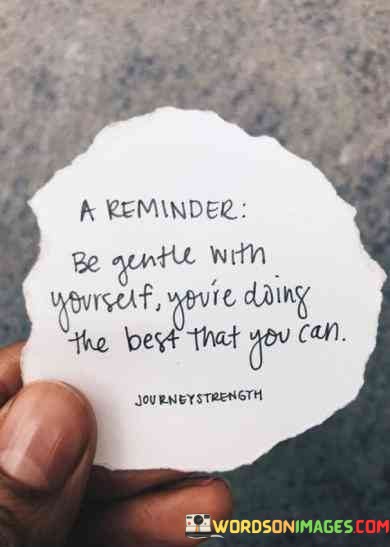 A REMINDER:
Be gentle with
yourself, you're doing
the best that you can.
JOURNEYSTRENGTH
WORDSONIMAGES.COM